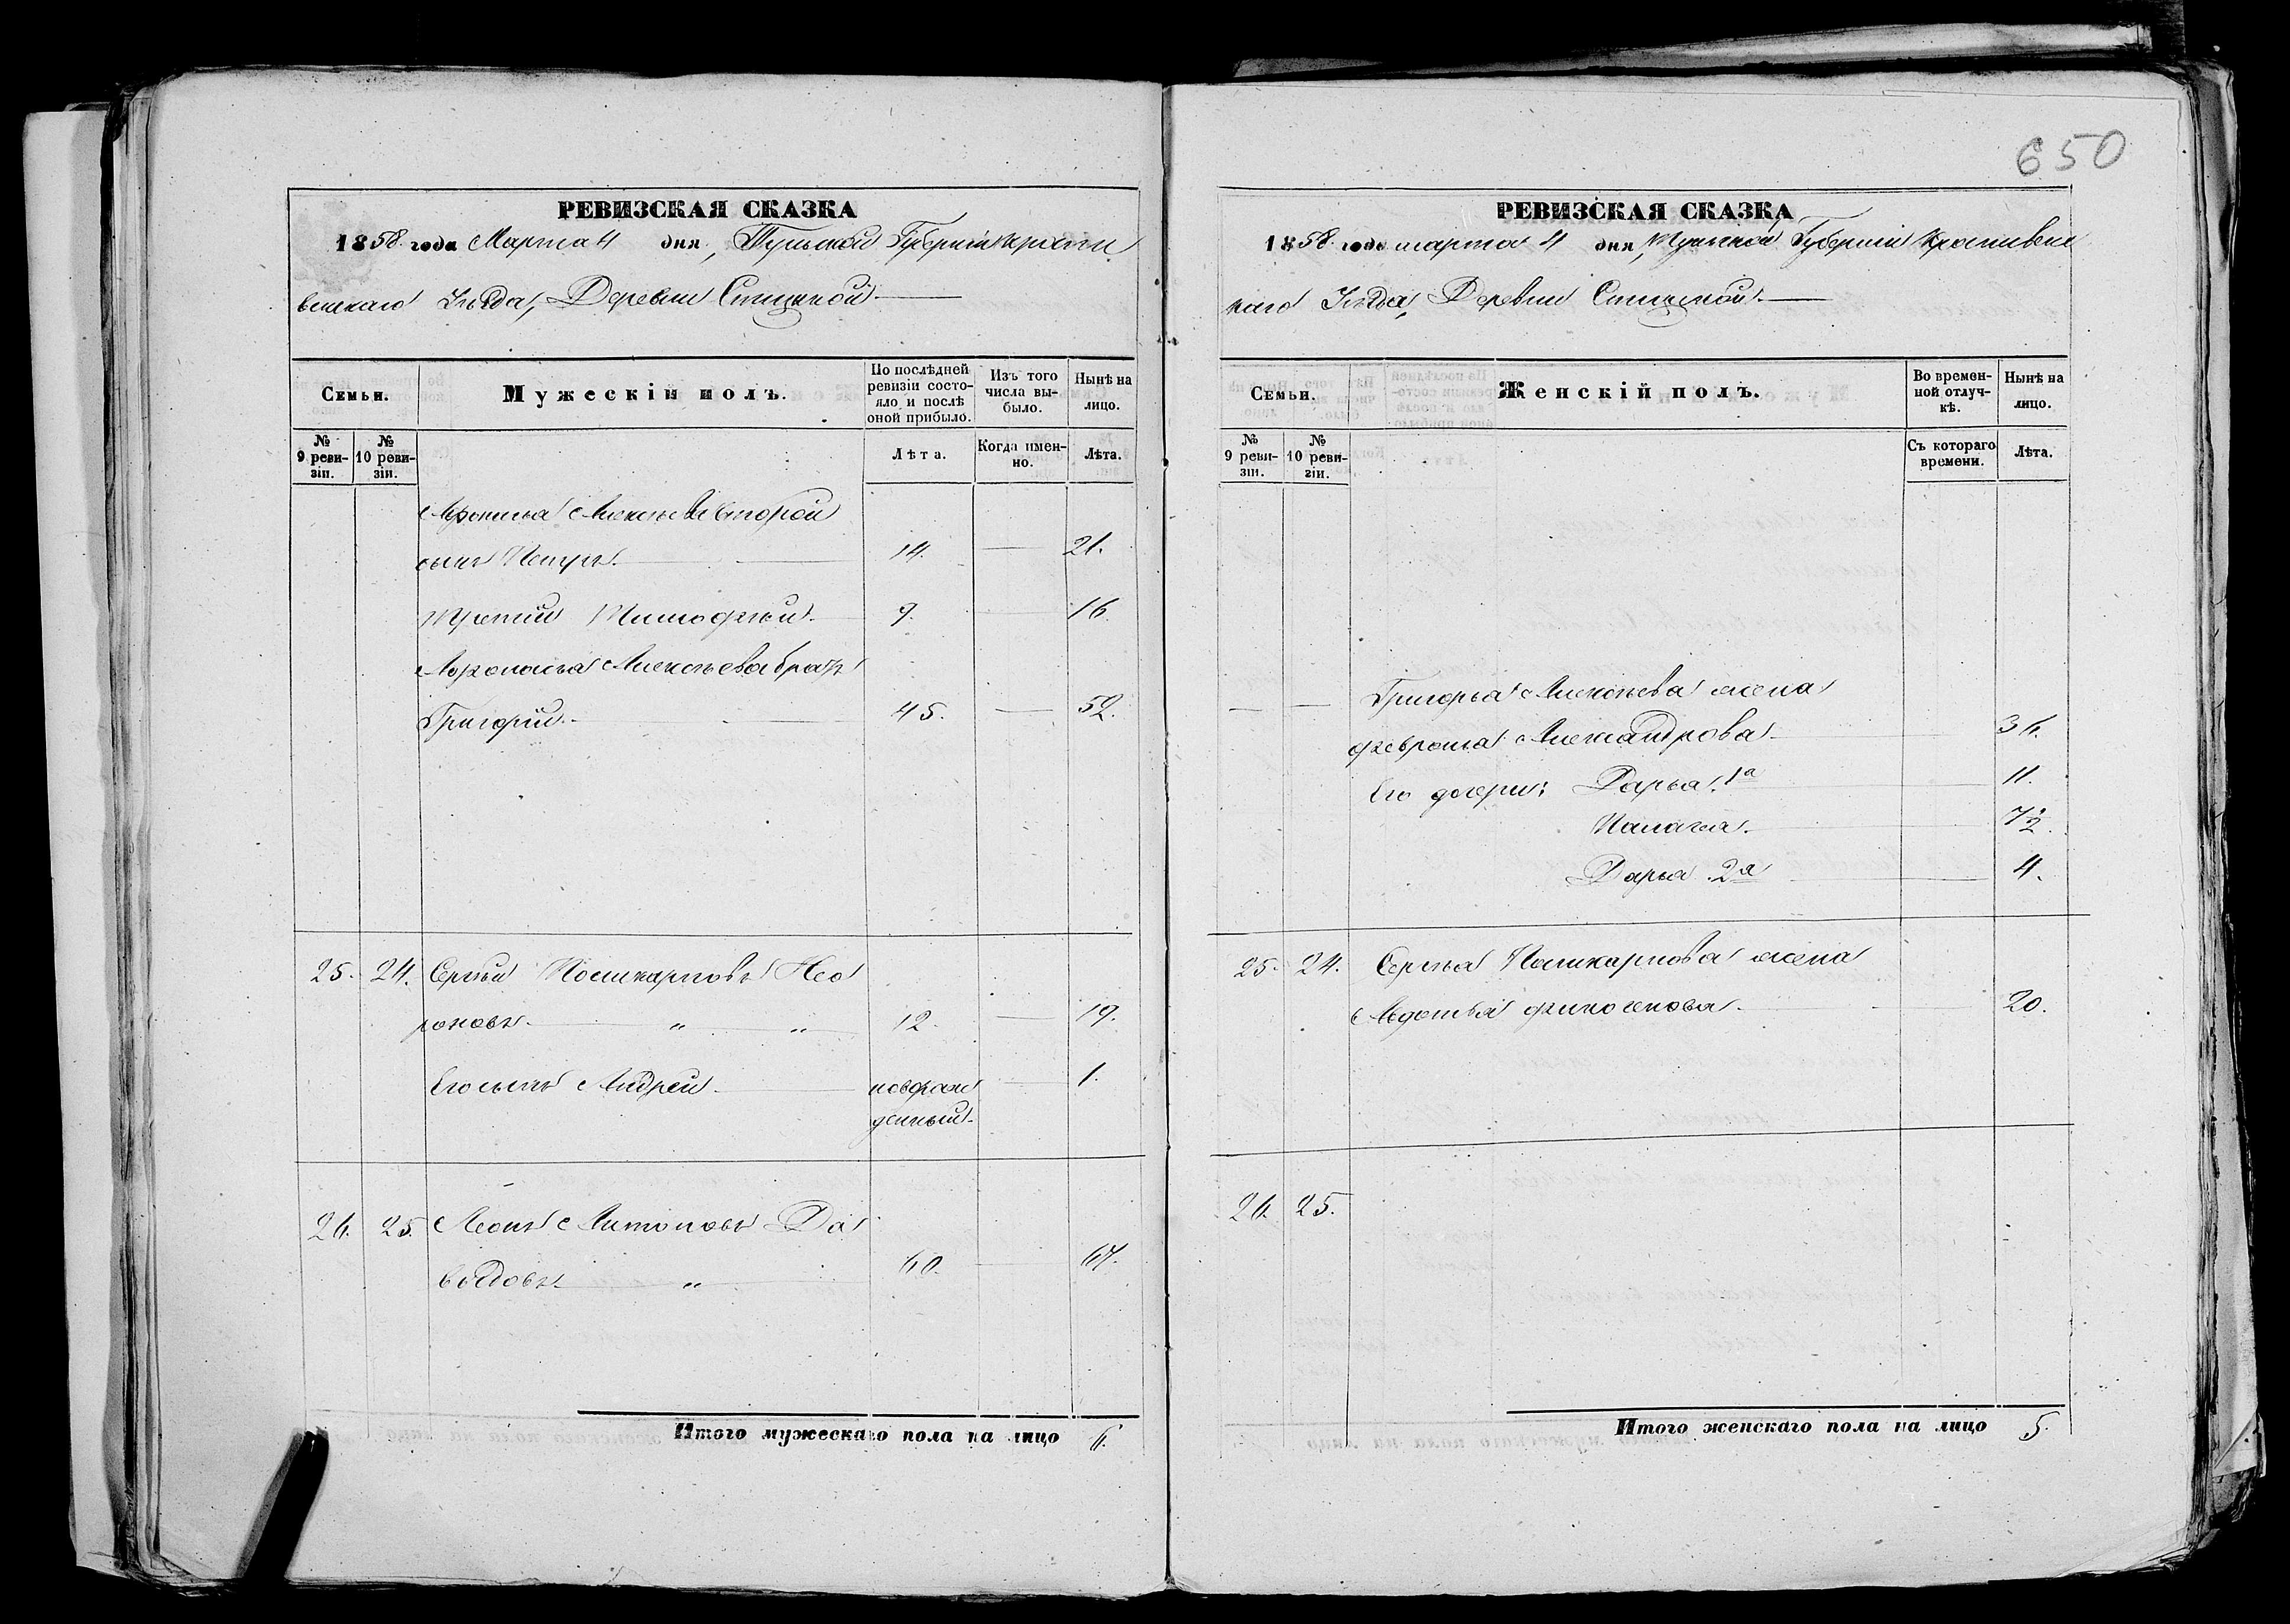 650
РЕВИЗСКАЯ СКАЗКА
1858 года Марта 4 дня, Тульской Губернiи Крапи
венскаго Уѣзда, Деревни Спицкой
Семьи.
Мужескiй полъ.
По послѣдней ревизiи состояло и послѣ оной прибыло.
Изъ того числа выбыло.
Нынѣ на лицо.
№ 9 ревизiи.
№ 10 ревизiи.
Лѣта.
Когда именно.
Лѣта.
Алексѣева второй
сынъ Петръ. 14. 21.
Третiй Тимофѣй. 9. 16.
Алексѣева братъ
Григорiй. 45. 52.
25. 24. Сергѣй Поликарповъ
12. 19.
Его сынъ Андрей. новорож
денный. 1.
26. 25. Антоновъ Да
выдовъ. 60. 67.
Итого мужескаго пола на лицо 6.
РЕВИЗСКАЯ СКАЗКА
1858 года марта 4 дня, Тульской Губернiи Крапивенс
каго Уѣзда, Деревни Спицкой.
Семьи.
Женскiй полъ.
Во временной отлучкѣ.
Нынѣ на лицо.
№ 9 ревизiи.
№ 10 ревизiи.
Съ котораго времени.
Лѣта.
Григорья Алексѣева жена
Александрова 36.
Его дочери: Дарья 1а 11.
Палагея. 7½.
Дарья 2я 4.
25. 24. Сергѣя Поликарпова жена
Авдотья Финогенова. 20.
26. 25.
Итого женскаго пола на лицо 5.